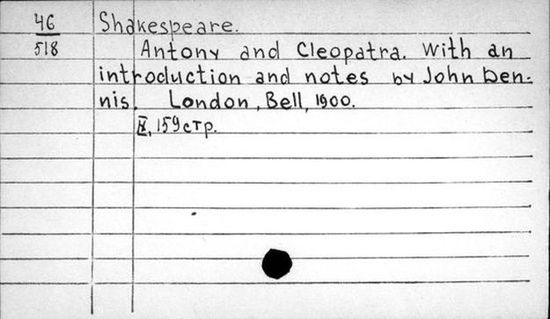 46 Shakespeare.
518 Antony and Cleopatra. With an
introduction and notes by John Den-
nis. London, Bell, 1900.
IV, 159 стр.